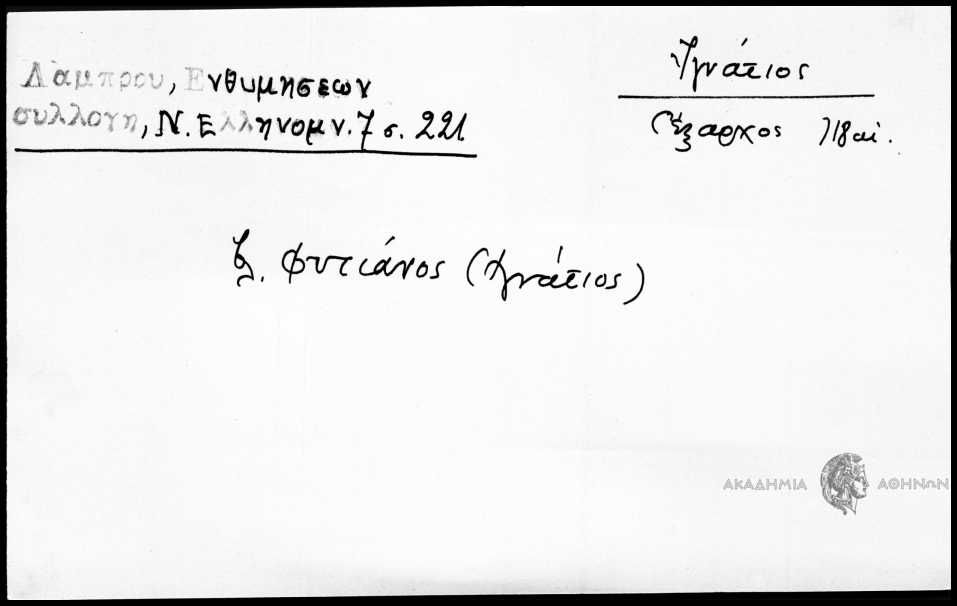 Λάμπρου, Ενθυμησεων
συλλογη, Ν. Ελληνομν. 7 σ. 221
Ἰγνάτιος
(ἔξαρχος) 18 αἰ.
ξ. Φυτιάνος (Ἰγνάτιος)
ΑΚΑΔΗΜΙΑ ΑΘΗΝΩΝ